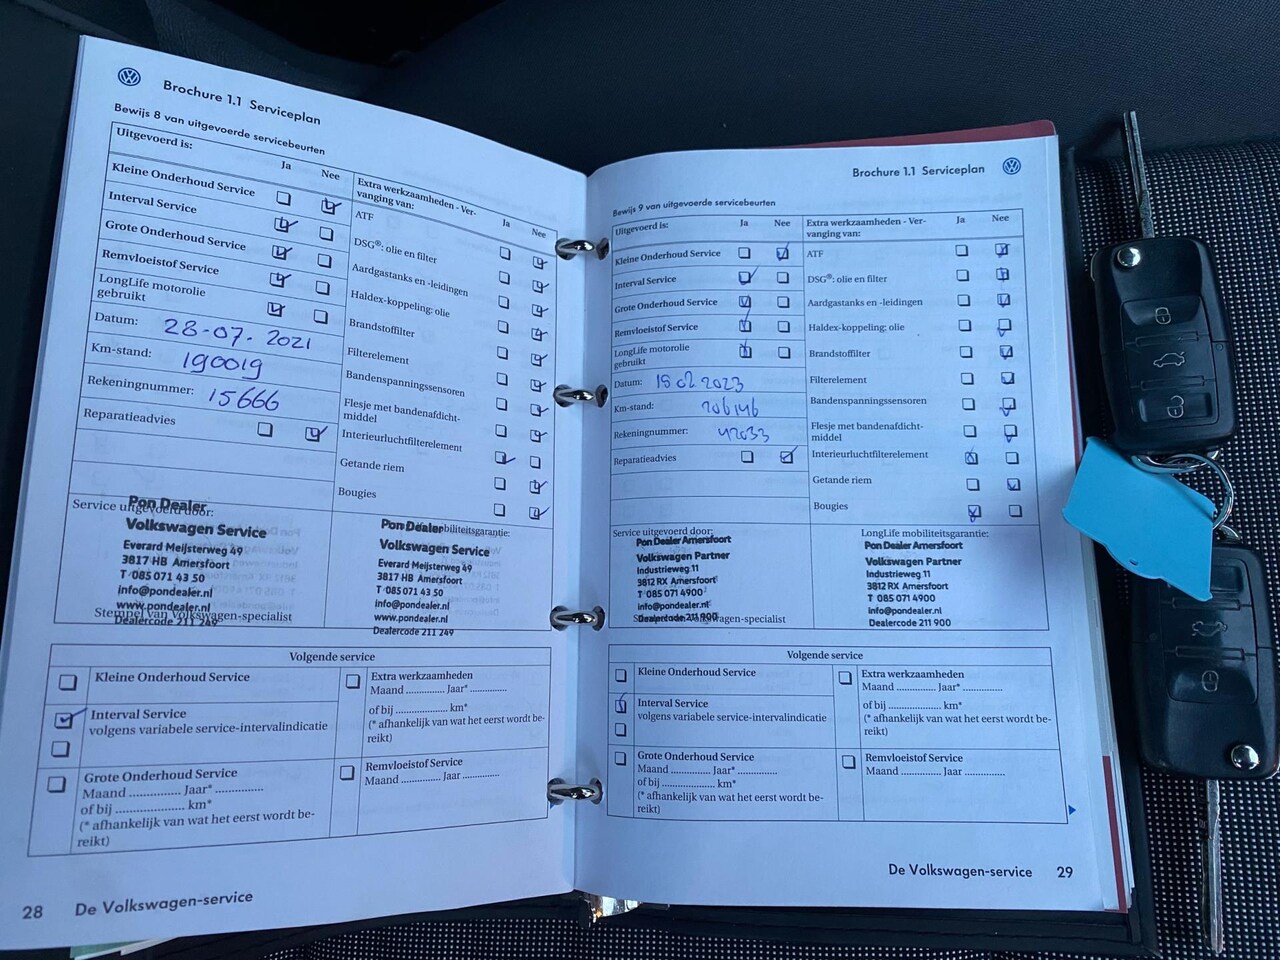 Brochure 1.1 Serviceplan
Bewijs 8 van uitgevoerde servicebeurten
Uitgevoerd is:
Ja
Nee
Kleine Onderhoud Service
Interval Service
Grote Onderhoud Service
Remvloeistof Service
LongLife motorolie
gebruikt
Datum: 28-07-2021
Km-stand: 190019
Rekeningnummer: 15666
Reparatieadvies
Extra werkzaamheden - Ver-
vanging van:
Ja
Nee
ATF
DSG®: olie en filter
Aardgastanks en -leidingen
Haldex-koppeling: olie
Brandstoffilter
Filterelement
Bandenspanningssensoren
Flesje met bandenafdicht-
middel
Interieurluchtfilterelement
Getande riem
Bougies
Service uitgevoerd door:
Pon Dealer
Volkswagen Service
Everard Meijsterweg 49
3817 HB Amersfoort
T 085 071 43 50
info@pondealer.nl
www.pondealer.nl
Dealercode 211 249
Stempel van Volkswagen-specialist
mobiliteitsgarantie:
Pon Dealer
Volkswagen Service
Everard Meijsterweg 49
3817 HB Amersfoort
T 085 071 43 50
info@pondealer.nl
www.pondealer.nl
Dealercode 211 249
Volgende service
Kleine Onderhoud Service
Interval Service
volgens variabele service-intervalindicatie
Grote Onderhoud Service
Maand .............. Jaar* ..............
of bij .................... km*
(* afhankelijk van wat het eerst wordt be-
reikt)
Extra werkzaamheden
Maand .............. Jaar* ..............
of bij .................... km*
(* afhankelijk van wat het eerst wordt be-
reikt)
Remvloeistof Service
Maand .............. Jaar ..............
28 De Volkswagen-service
Brochure 1.1 Serviceplan
Bewijs 9 van uitgevoerde servicebeurten
Uitgevoerd is:
Ja
Nee
Kleine Onderhoud Service
Interval Service
Grote Onderhoud Service
Remvloeistof Service
LongLife motorolie
gebruikt
Datum: 15 02 2023
Km-stand: 206146
Rekeningnummer: 42033
Reparatieadvies
Extra werkzaamheden - Ver-
vanging van:
Ja
Nee
ATF
DSG®: olie en filter
Aardgastanks en -leidingen
Haldex-koppeling: olie
Brandstoffilter
Filterelement
Bandenspanningssensoren
Flesje met bandenafdicht-
middel
Interieurluchtfilterelement
Getande riem
Bougies
Service uitgevoerd door:
Pon Dealer Amersfoort
Volkswagen Partner
Industrieweg 11
3812 RX Amersfoort
T 085 071 4900
info@pondealer.nl
Dealercode 211 900
Volkswagen-specialist
LongLife mobiliteitsgarantie:
Pon Dealer Amersfoort
Volkswagen Partner
Industrieweg 11
3812 RX Amersfoort
T 085 071 4900
info@pondealer.nl
Dealercode 211 900
Volgende service
Kleine Onderhoud Service
Interval Service
volgens variabele service-intervalindicatie
Grote Onderhoud Service
Maand .............. Jaar* ..............
of bij .................... km*
(* afhankelijk van wat het eerst wordt be-
reikt)
Extra werkzaamheden
Maand .............. Jaar* ..............
of bij .................... km*
(* afhankelijk van wat het eerst wordt be-
reikt)
Remvloeistof Service
Maand .............. Jaar ..............
De Volkswagen-service 29